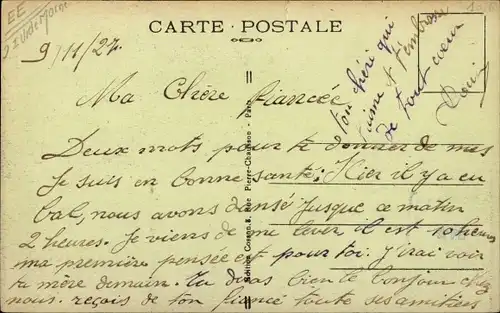 EE
CARTE POSTALE
9/11/27.
Ton chéri qui
t'aime et t'embrasse
de tout coeur
Ma Chère fiancée
Deux mots pour te donner de mes
Je suis en bonne santé. Hier il y a eu
bal, nous avons dansé jusque ce matin
2 heures. Je viens de me lever il est 10 heures
ma première pensée est pour toi. J'irai voir
ta mère demain. Tu diras bien le bonjour chez
nous. reçois de ton fiancé toute ses amitiées
Rue Pierre-Chausson - Paris